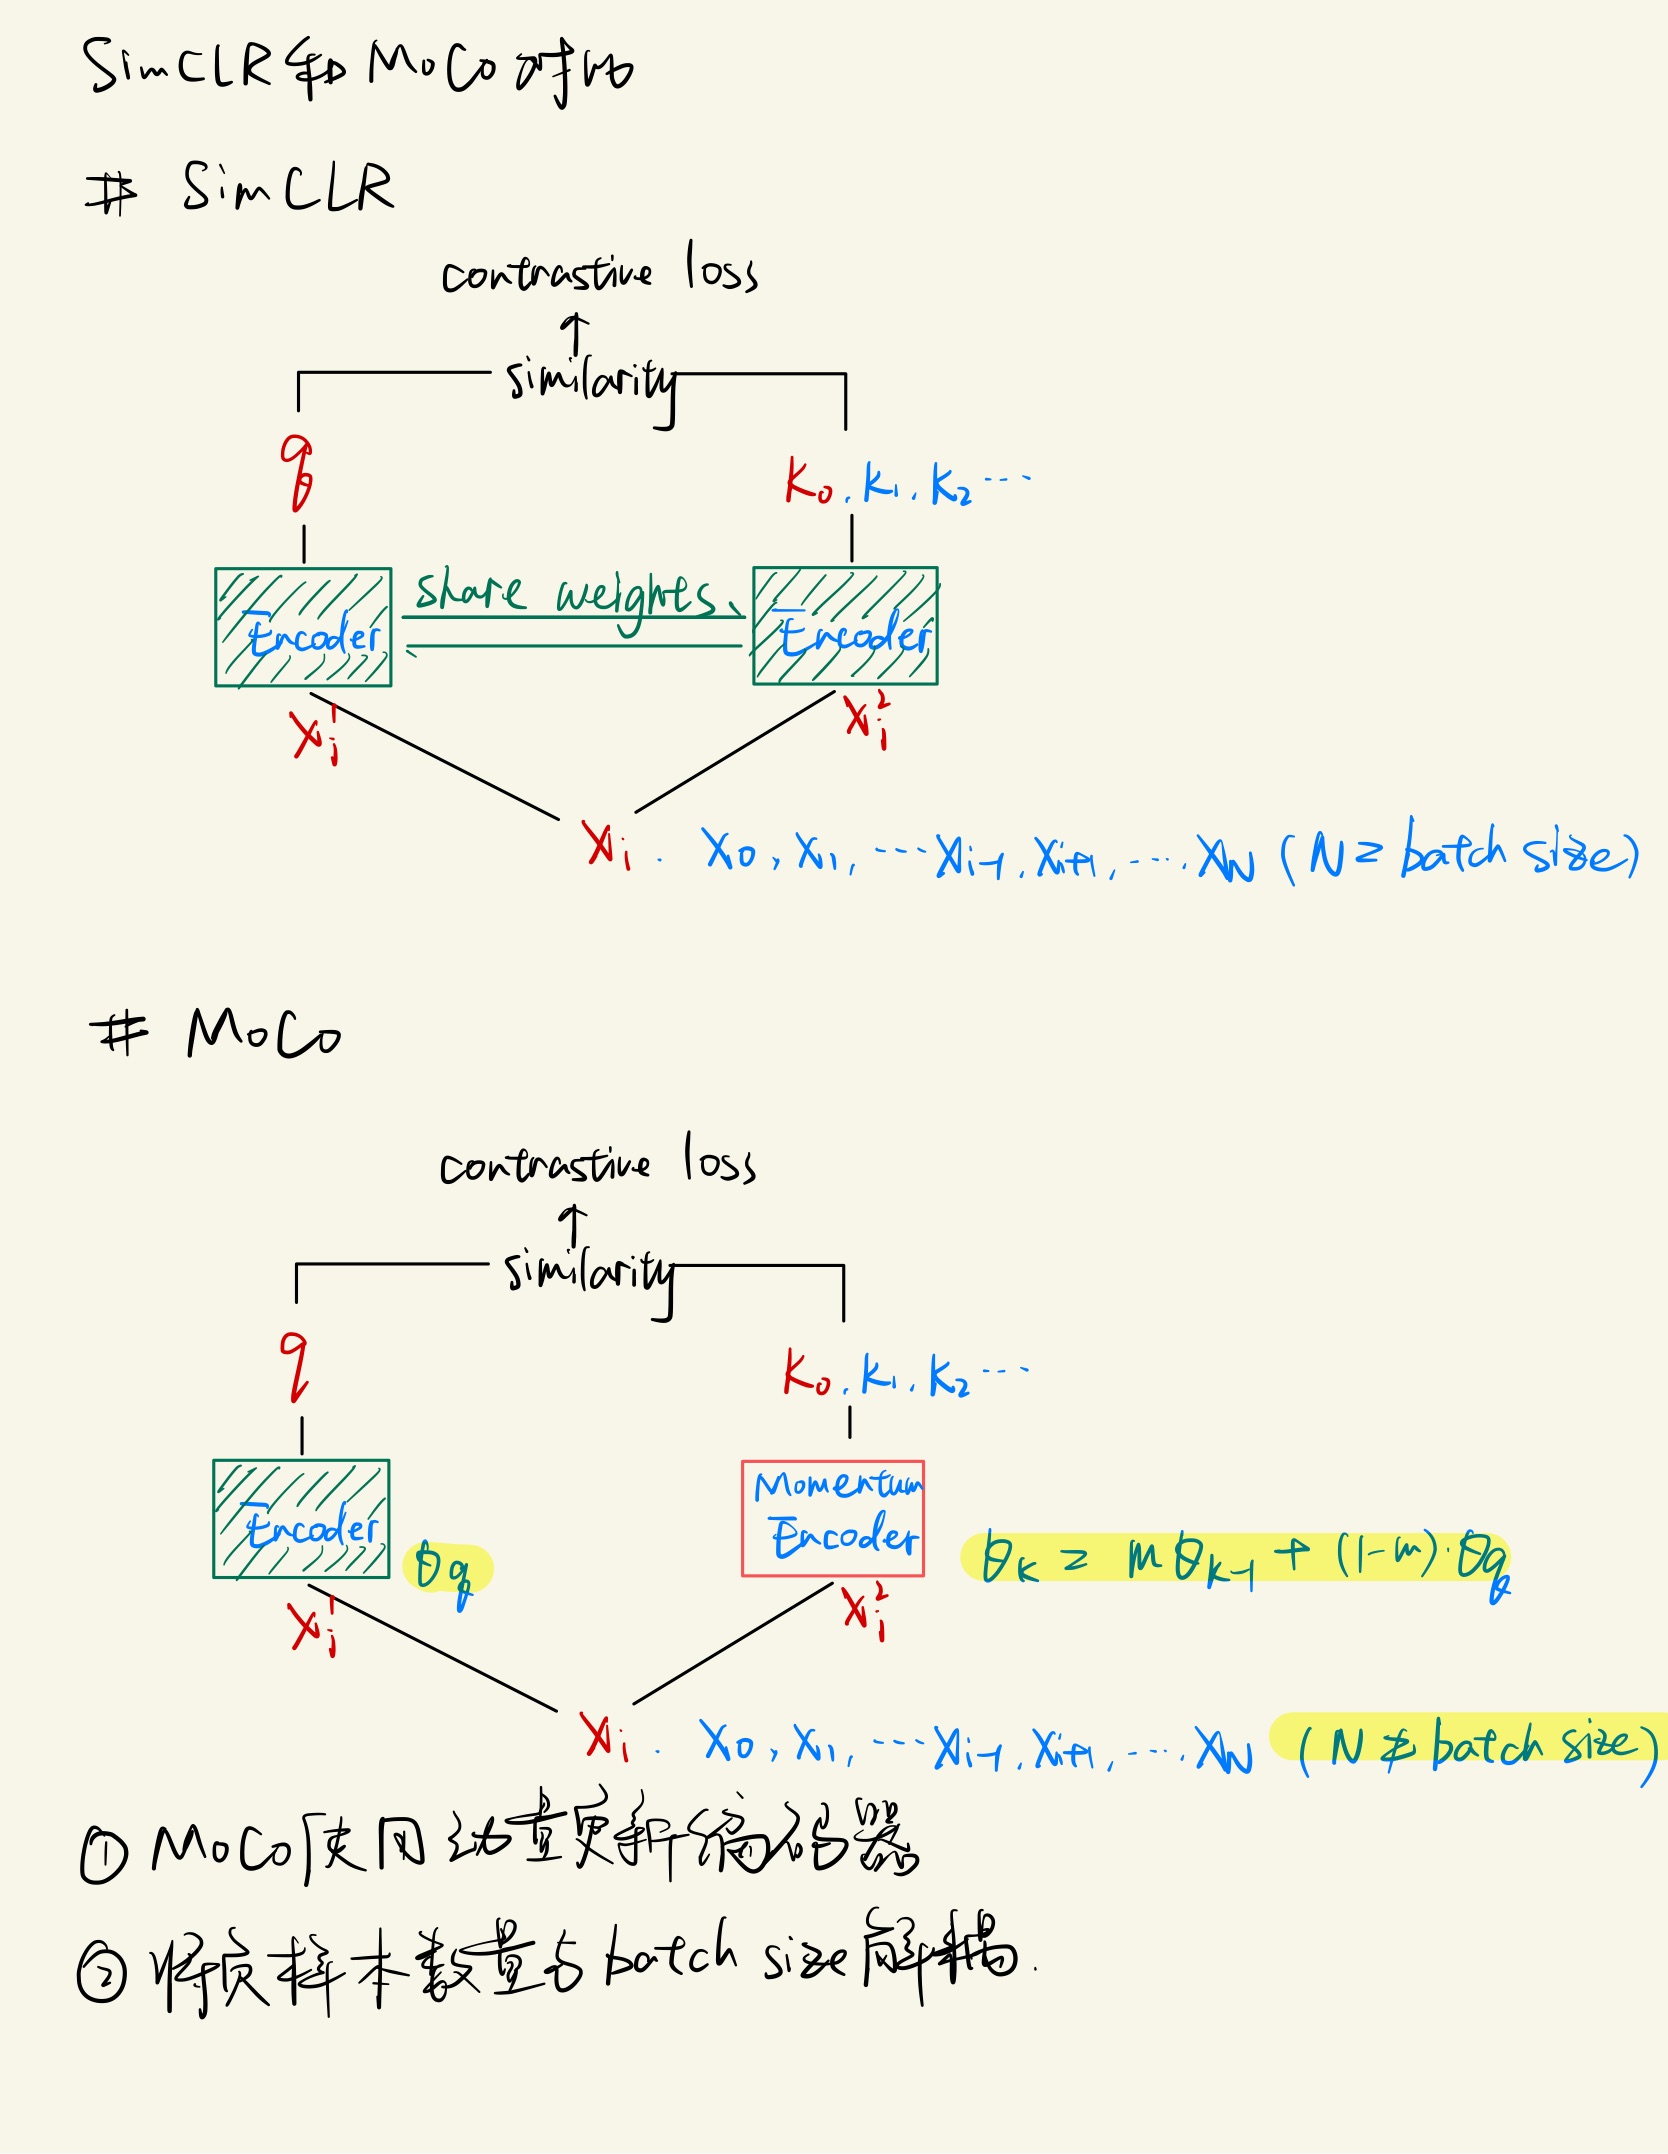 SimCLR和MoCo对比
# SimCLR
contrastive loss
↑
similarity
q
k₀, k₁, k₂ ...
Encoder
share weights.
Encoder
xᵢ¹
xᵢ²
xᵢ. x₀, x₁, ... xᵢ₋₁, xᵢ₊₁, ... x_N (N = batch size)
# MoCo
contrastive loss
↑
similarity
q
k₀, k₁, k₂ ...
Encoder
θq
Momentum
Encoder
θₖ = mθₖ₋₁ + (1-m)·θq
xᵢ¹
xᵢ²
xᵢ. x₀, x₁, ... xᵢ₋₁, xᵢ₊₁, ... x_N (N ≠ batch size)
① MoCo使用动量更新编码器
② 将负样本数量与batch size解耦.